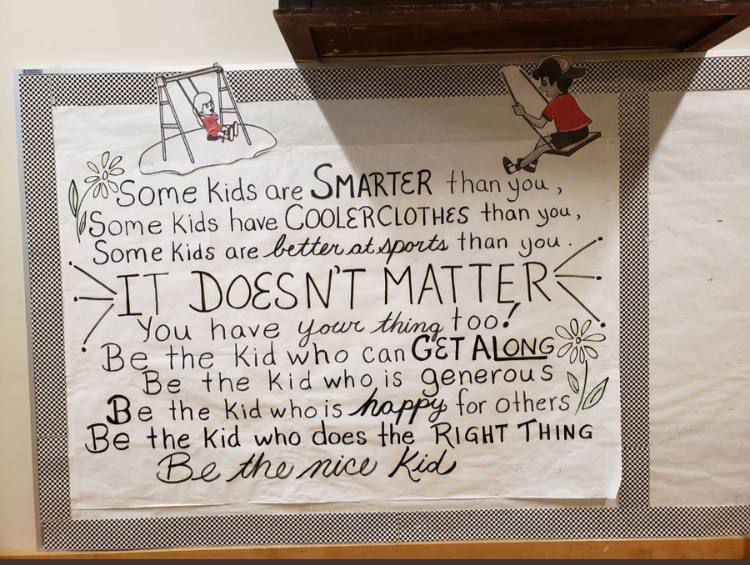 Some Kids are SMARTER than you,
Some Kids have COOLER CLOTHES than you,
Some Kids are better at sports than you.
IT DOESN'T MATTER
You have your thing too!
Be the Kid who can GET ALONG
Be the Kid who is generous
Be the Kid who is happy for others
Be the Kid who does the RIGHT THING
Be the nice Kid